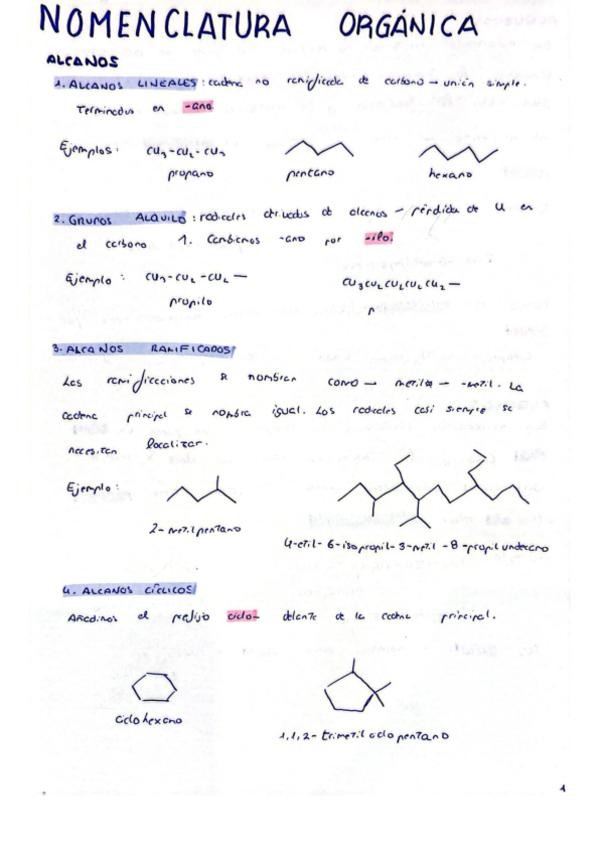 NOMENCLATURA ORGÁNICA
ALCANOS
1. ALCANOS LINEALES: cadena no ramificada de carbono → unión simple.
Terminados en -ano
Ejemplos: CH₃-CH₂-CH₃
propano pentano hexano
2. GRUPOS ALQUILO: radicales derivados de alcanos - pérdida de H en
el carbono 1. Cambiamos -ano por -ilo.
Ejemplo: CH₃-CH₂-CH₂— CH₃CH₂CH₂CH₂CH₂—
propilo P
3. ALCANOS RAMIFICADOS
Las ramificaciones se nombran como → metilo → -metil. La
cadena principal se nombra igual. Los radicales casi siempre se
necesitan localizar.
Ejemplo:
2-metilpentano
4-etil-6-isopropil-3-metil-8-propilundecano
4. ALCANOS CÍCLICOS
Añadimos el prefijo ciclo- delante de la cadena principal.
ciclohexano
1,1,2-trimetilciclopentano
1